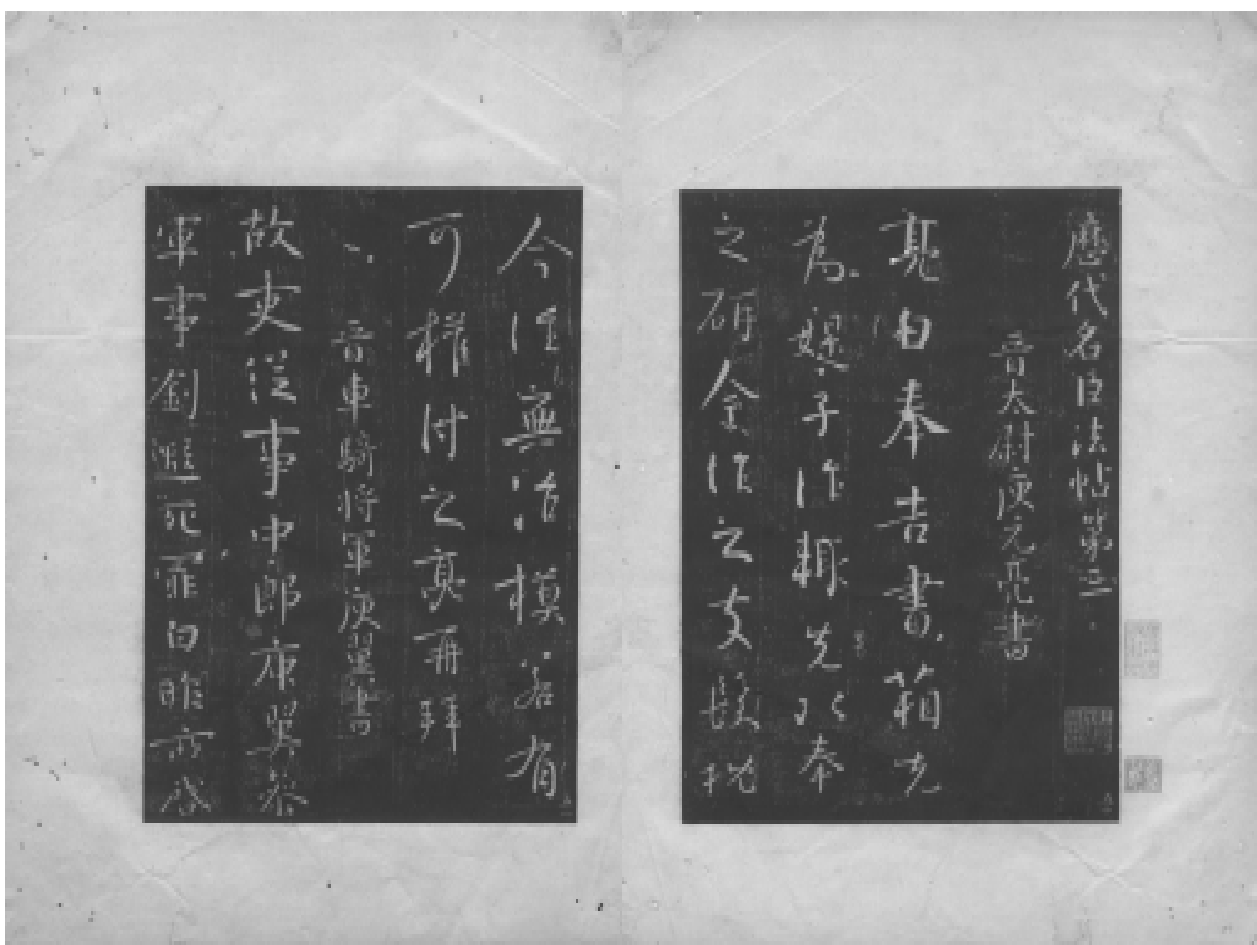 歷代名臣法帖第三
晉太尉庾元亮書
亮白奉告書箱先
為子作輙先以奉
之研金作之支髮枕
今作無活模若有
可權付之亮再拜
晉車騎將軍庾翼書
故吏從事中郎庾翼參
軍事劉遐死罪白昨所啓